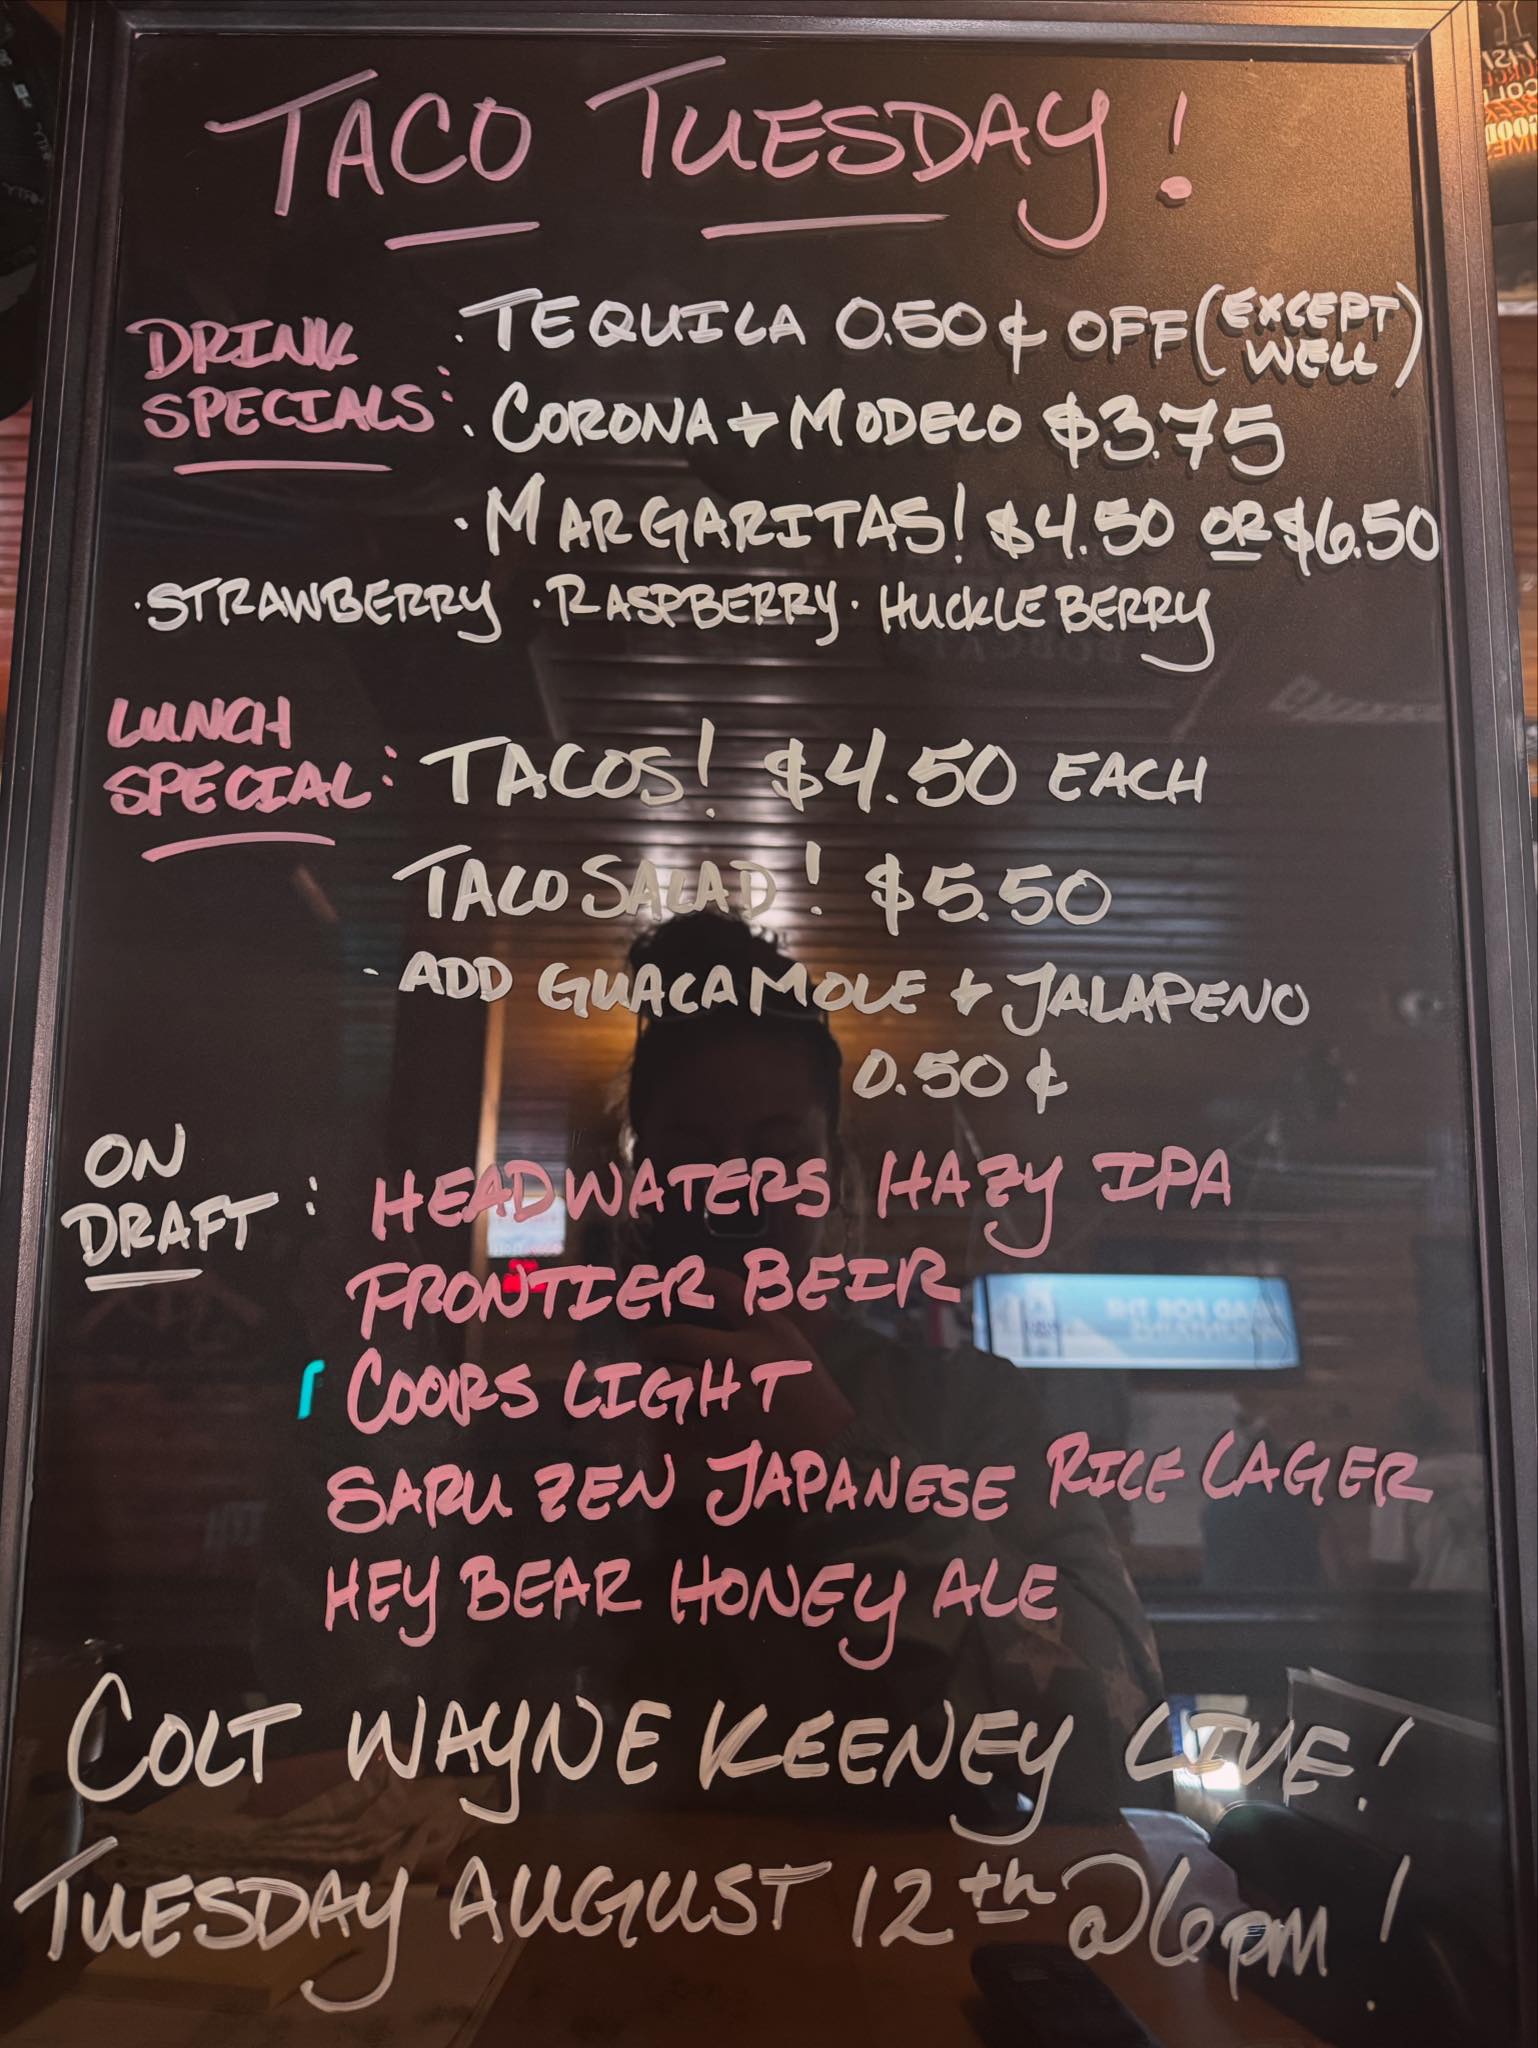 TACO TUESDAY!
DRINK SPECIALS:
· TEQUILA 0.50¢ OFF (EXCEPT WELL)
· CORONA + MODELO $3.75
· MARGARITAS! $4.50 OR $6.50
· STRAWBERRY · RASPBERRY · HUCKLEBERRY
LUNCH SPECIAL:
TACOS! $4.50 EACH
TACO SALAD! $5.50
· ADD GUACAMOLE + JALAPENO
0.50¢
ON DRAFT:
HEADWATERS HAZY IPA
FRONTIER BEIR
COORS LIGHT
SARU ZEN JAPANESE RICE LAGER
HEY BEAR HONEY ALE
COLT WAYNE KEENEY LIVE!
TUESDAY AUGUST 12th @ 6PM!